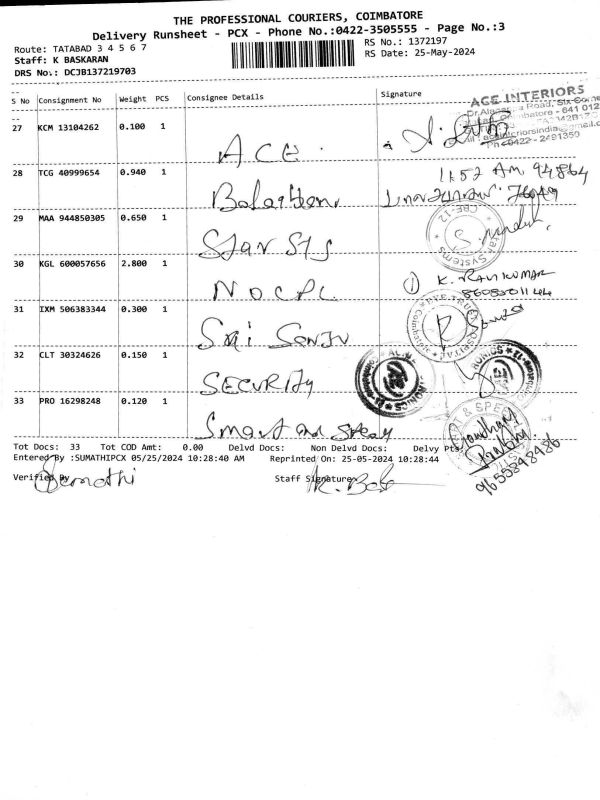 THE PROFESSIONAL COURIERS, COIMBATORE
Delivery Runsheet - PCX - Phone No.:0422-3505555 - Page No.:3
Route: TATABAD 3 4 5 6 7
RS No.: 1372197
Staff: K BASKARAN
RS Date: 25-May-2024
DRS No.: DCJB137219703
S No Consignment No Weight PCS Consignee Details Signature
ACE INTERIORS
27 KCM 13104262 0.100 1 ACE
Ph-0422 - 2491350
28 TCG 40999654 0.940 1
11.52 Am 94864
29 MAA 944850305 0.650 1 Star Sys
CBE-12
30 KGL 600057656 2.800 1 NOCPL
① K. RAVIKUMAR
31 IXM 506383344 0.300 1 Sri Sanju
32 CLT 30324626 0.150 1 SECURITY
33 PRO 16298248 0.120 1 Smart and
9655848486
Tot Docs: 33 Tot COD Amt: 0.00 Delvd Docs: Non Delvd Docs: Delvy Pts:
Entered By :SUMATHIPCX 05/25/2024 10:28:40 AM Reprinted On: 25-05-2024 10:28:44
Verified By Sumathi Staff Signature